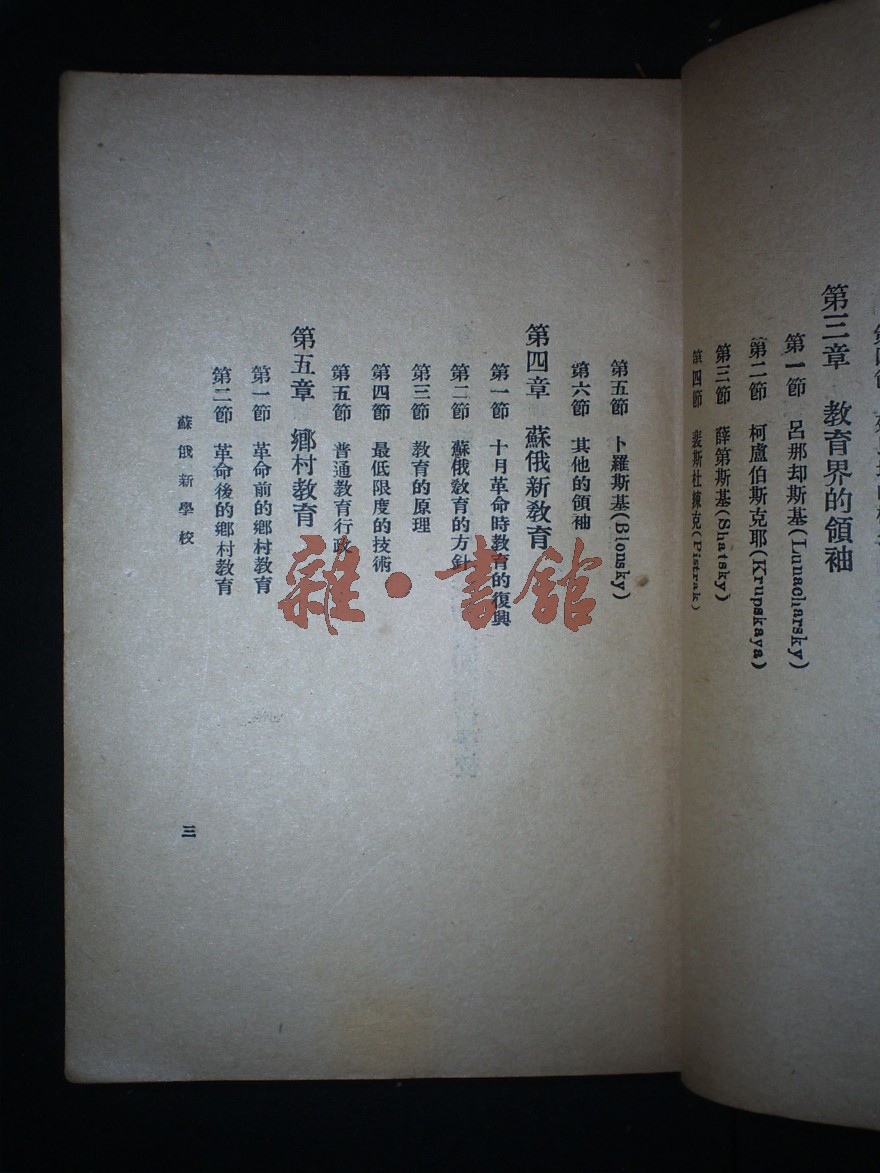 第三章　教育界的領袖
第一節　呂那却斯基(Lunacharsky)
第二節　柯盧伯斯克耶(Krupskaya)
第三節　薛第斯基(Shatsky)
第四節　裴斯杜鍊克(Pistrak)
第五節　卜羅斯基(Blonsky)
第六節　其他的領袖
第四章　蘇俄新教育
第一節　十月革命時教育的復興
第二節　蘇俄敎育的方針
第三節　教育的原理
第四節　最低限度的技術
第五節　普通教育行政
第五章　鄉村教育
第一節　革命前的鄉村教育
第二節　革命後的鄉村教育
蘇俄新學校
三
雜·書館